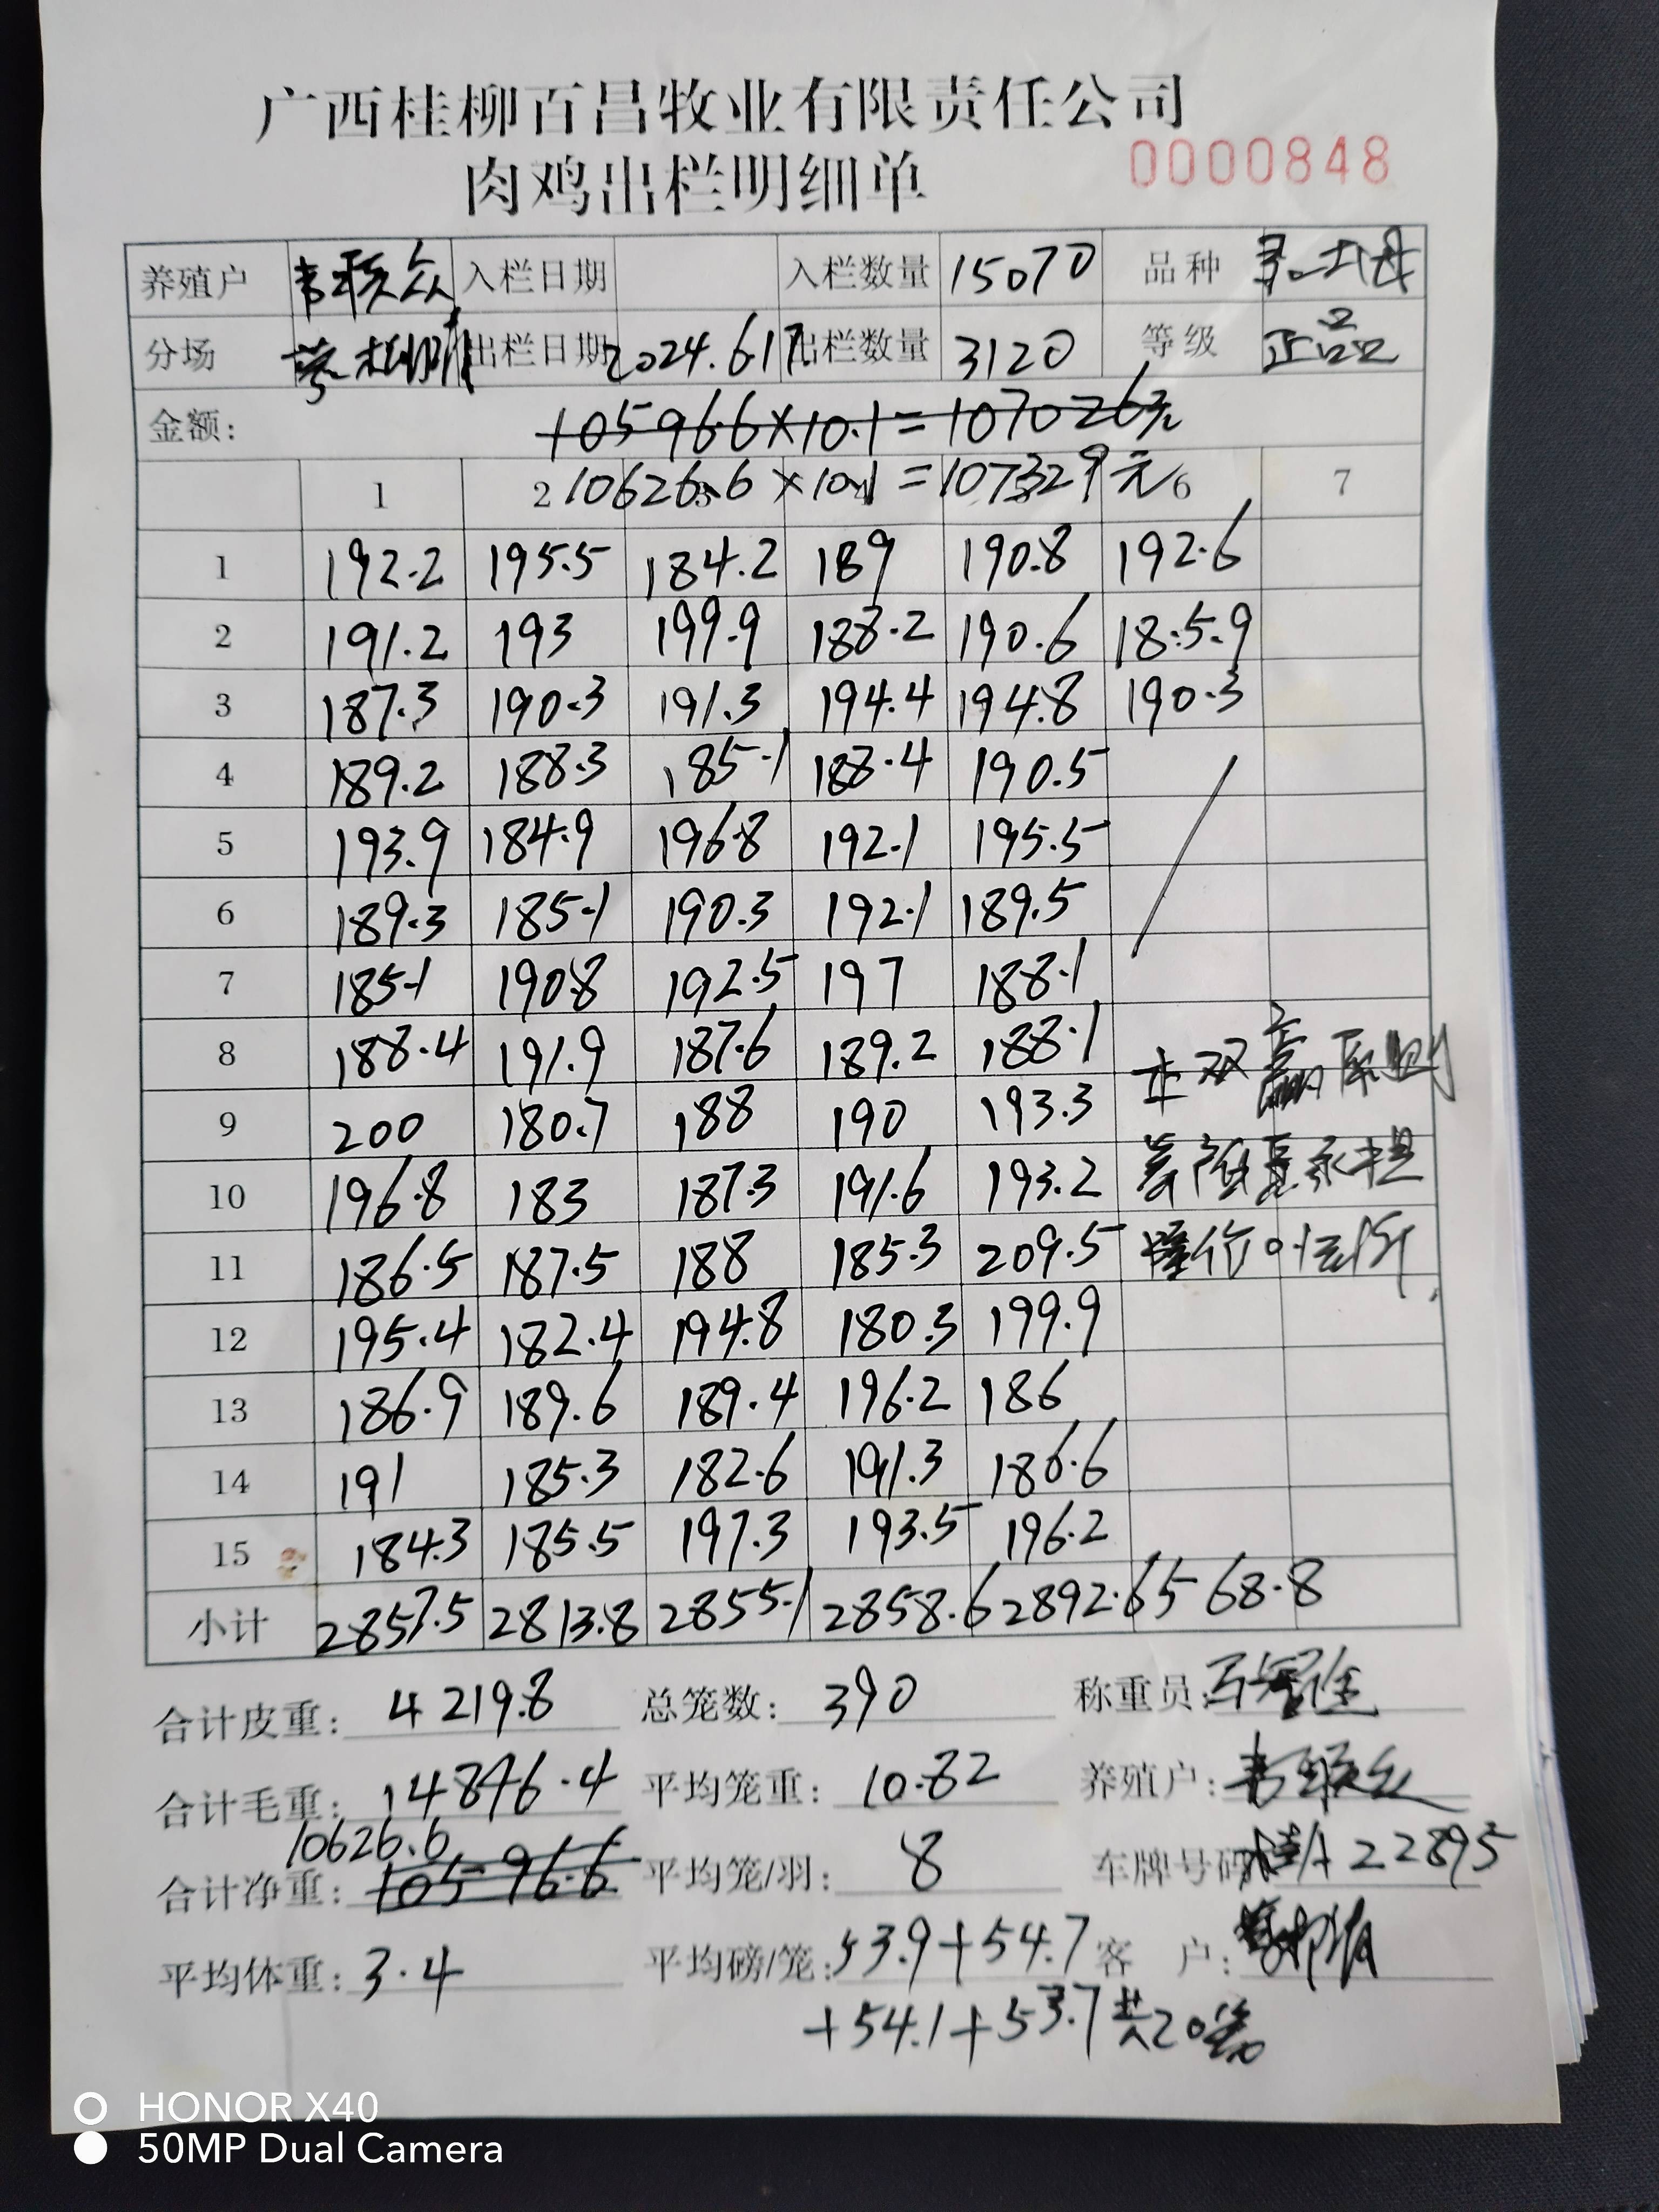 广西桂柳百昌牧业有限责任公司
肉鸡出栏明细单 0000848
养殖户 韦联众 入栏日期 入栏数量 15070 品种
分场 出栏日期 2024.6.17 出栏数量 3120 等级 正品
金额: 10596.6×10.1=107026元
10626.6×10.1=107329元
1 2 3 4 5 6 7
1 192.2 195.5 184.2 189 190.8 192.6
2 191.2 193 199.9 188.2 190.6 185.9
3 187.3 190.3 191.3 194.4 194.8 190.3
4 189.2 188.3 185.1 188.4 190.5
5 193.9 184.9 196.8 192.1 195.5
6 189.3 185.1 190.3 192.1 189.5
7 185.1 190.8 192.5 197 188.1
8 188.4 191.9 187.6 189.2 188.1 双赢原则
9 200 180.7 188 190 193.3
10 196.8 183 187.3 191.6 193.2
11 186.5 187.5 188 185.3 209.5
12 195.4 182.4 194.8 180.3 199.9
13 186.9 189.6 189.4 196.2 186
14 191 185.3 182.6 191.3 186.6
15 184.3 185.5 197.3 193.5 196.2
小计 2857.5 2813.8 2855.1 2858.6 2892.6 568.8
合计皮重: 4219.8 总笼数: 390 称重员:
合计毛重: 14846.4 平均笼重: 10.82 养殖户: 韦联众
10626.6
合计净重: 10596.6 平均笼/羽: 8 车牌号码 桂A22895
平均体重: 3.4 平均磅/笼: 53.9+54.7 客 户:
+54.1+53.7共20笼
HONOR X40
50MP Dual Camera